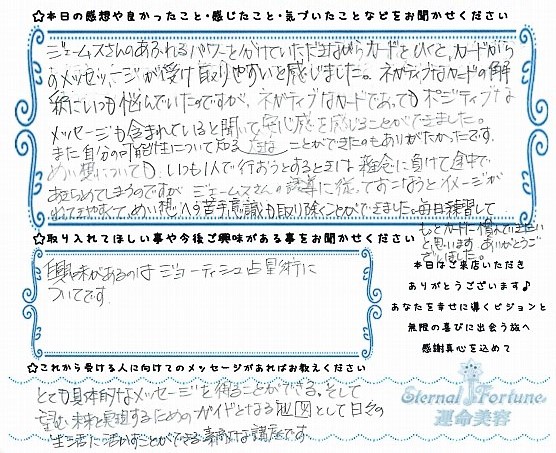 ☆本日の感想や良かったこと・感じたこと・気づいたことなどをお聞かせください
ジェームスさんのあふれるパワーをかけていただきながらカードをひくと、カードから
のメッセージが受け取りやすいと感じました。ネガティブなカードの解
釈にいつも悩んでいたのですが、ネガティブなカードであってもポジティブな
メッセージも含まれていると聞いて安心感を感じることができました。
また自分の可能性について知る ことができたのもありがたかったです。
めい想についても、いつも1人で行おうとするときは雑念に負けて途中で
あきらめてしまうのですが ジェームスさんの誘導に従っておこなうとイメージが
わいてきやすくて、めい想への苦手意識も取り除くことができました。毎日練習して
もっとカードに慣れていきたい
と思います ありがとうご
ざいました。
☆取り入れてほしい事や今後ご興味がある事をお聞かせください
興味があるのはジョーティシュ占星術に
ついてです。
本日はご来店いただき
ありがとうございます♪
あなたを幸せに導くビジョンと
無限の喜びに出会う旅へ
感謝真心を込めて
☆これから受ける人に向けてのメッセージがあればお教えください
とても具体的なメッセージを得ることができる。そして
望む未来を実現するためのガイドとなる地図として日々の
生活に活かすことができる素敵な講座です。
Eternal Fortune
運命美容